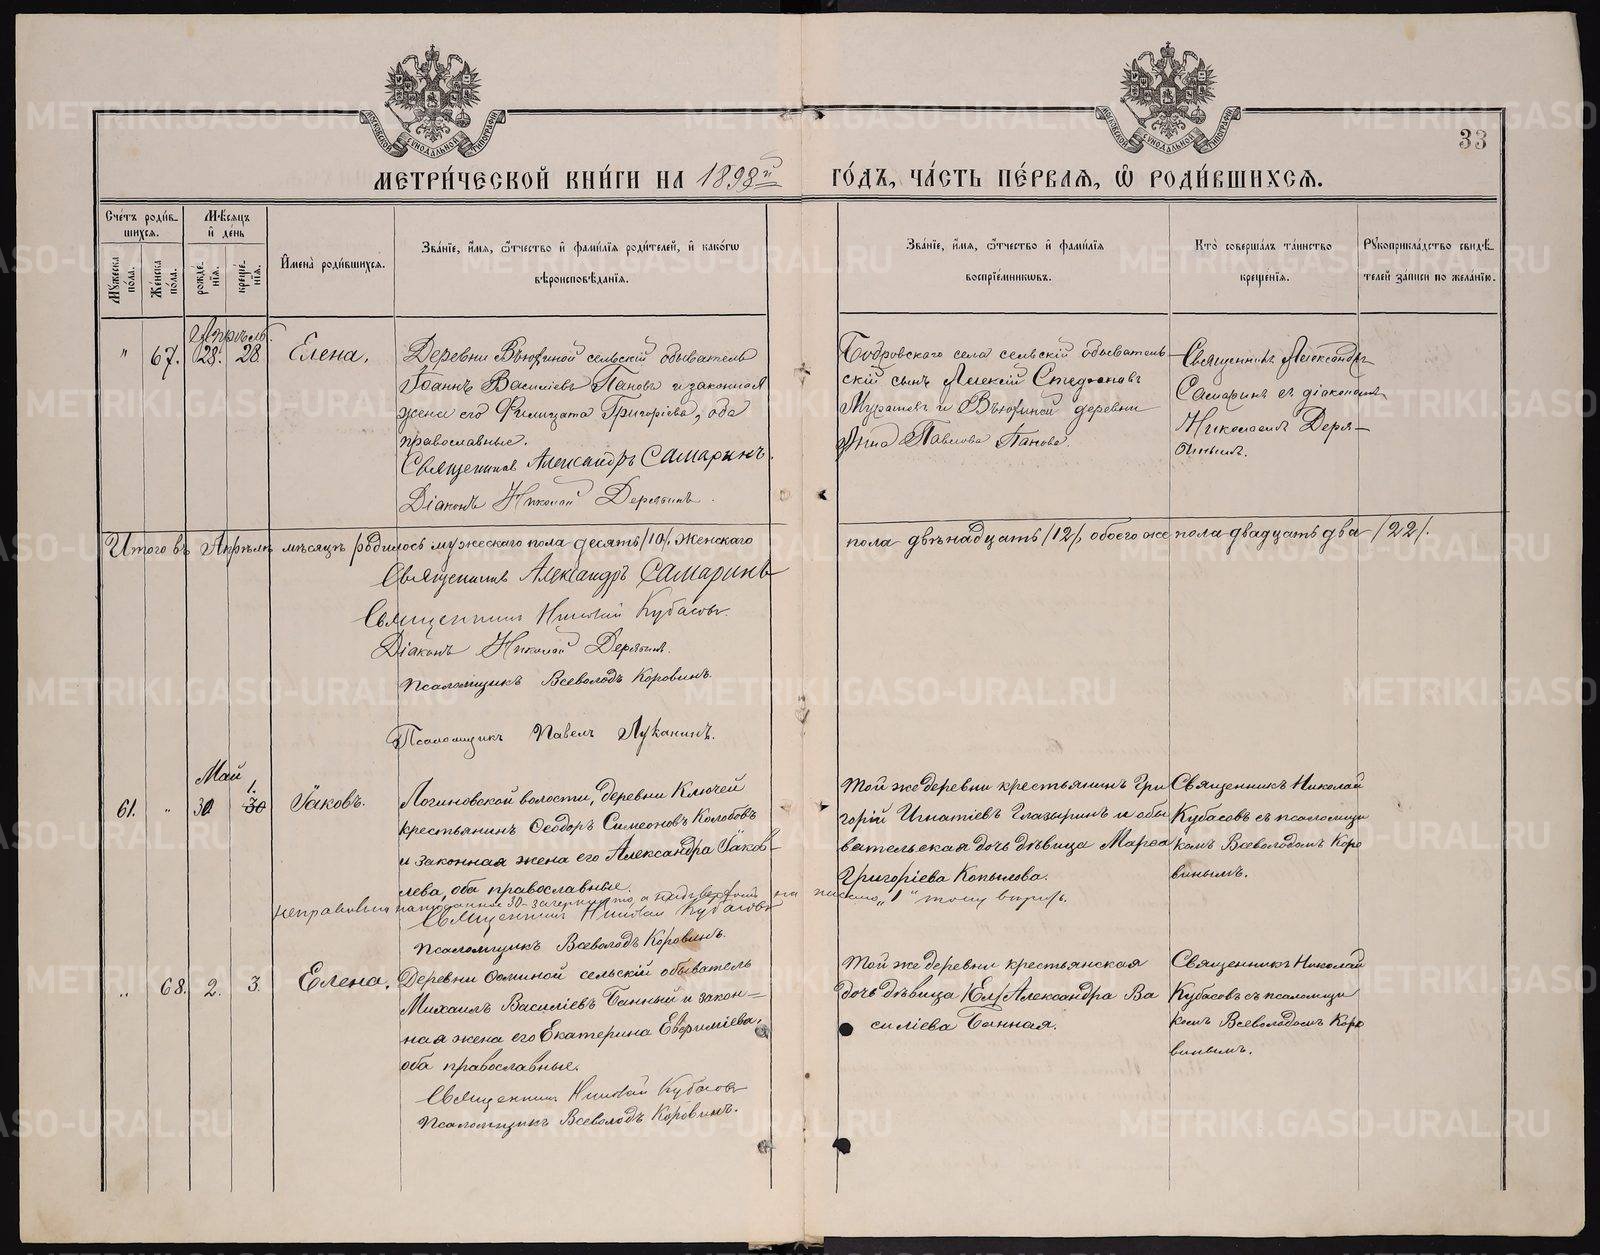 МОСКОВСКОЙ СѴНОДАЛЬНОЙ ТИПОГРАФІИ
МОСКОВСКОЙ СѴНОДАЛЬНОЙ ТИПОГРАФІИ
33
МЕТРИ́ЧЕСКОЙ КНИ́ГИ НА 1898й ГО́ДЪ, ЧА́СТЬ ПЕ́РВАЯ, Ѡ РОДИ́ВШИХСЯ.
Сче́тъ роди́в-
шихся.
Мѣсяцъ
и де́нь
Мꙋжеска по́ла.
Же́нска по́ла.
рожде́-нія.
креще́-нія.
Имена̀ роди́вшихся.
Зва́ніе, и́мя, ѻ́тчество и фами́лія роди́телей, и како́гѡ
вѣроисповѣ́данія.
Зва́ніе, и́мя, ѻ́тчество и фами́лія
воспріе́мникѡвъ.
Кто̀ соверша́лъ та́инство
креще́нія.
Рꙋкоприкла́дство свидѣ́-
телей за́писи по жела́нію.
Апрѣль.
" 67. 28. 28. Елена.
Деревни Вьюхиной сельскій обыватель
Іоаннъ Василіевъ Пановъ и законная
жена его Филицата Григоріева, оба
православные.
Священникъ Александръ Самаринъ.
Діаконъ Николай Дерябинъ.
Бобровскаго села сельскій обыватель-
скій сынъ Алексій Стефановъ
и Вьюхиной деревни
Анна Павлова Панова.
Священникъ Александръ
Самаринъ съ діакономъ
Николаемъ Деря-
бинымъ.
Итого въ Апрѣлѣ мѣсяцѣ родилось мужескаго пола десять /10/, женскаго
пола двѣнадцать /12/, обоего же пола двадцать два /22/.
Священникъ Александръ Самаринъ
Священникъ Николай Кубасовъ.
Діаконъ Николай Дерябинъ.
Псаломщикъ Всеволодъ Коровинъ.
Псаломщикъ Павелъ Луканинъ.
Май
1.
61. " 30 30 Іаковъ.
Логиновской волости, деревни Ключей
крестьянинъ Ѳеодоръ Симеоновъ Колобовъ
и законная жена его Александра Іаков-
лева, оба православные.
неправильно написанное 30- зачеркнуто, а надъ верхомъ написано "1" тому вѣрить.
Священникъ Николай Кубасовъ
Псаломщикъ Всеволодъ Коровинъ.
Той же деревни крестьянинъ Гри
горій Игнатіевъ Глазыринъ и обы
вательская дочь дѣвица Марѳа
Григоріева Копылова.
Священникъ Николай
Кубасовъ съ псаломщи
комъ Всеволодомъ Коро
винымъ.
" 68. 2. 3. Елена.
Деревни Ѳоминой сельскій обыватель
Михаилъ Василіевъ Банный и закон-
ная жена его Екатерина Евѳиміева,
оба православные.
Священникъ Николай Кубасовъ
Псаломщикъ Всеволодъ Коровинъ.
Той же деревни крестьянская
дочь дѣвица /Ел/ Александра Ва
силіева Банная.
Священникъ Николай
Кубасовъ съ псаломщи
комъ Всеволодомъ Коро
винымъ.
METRIKI.GASO-URAL.RU